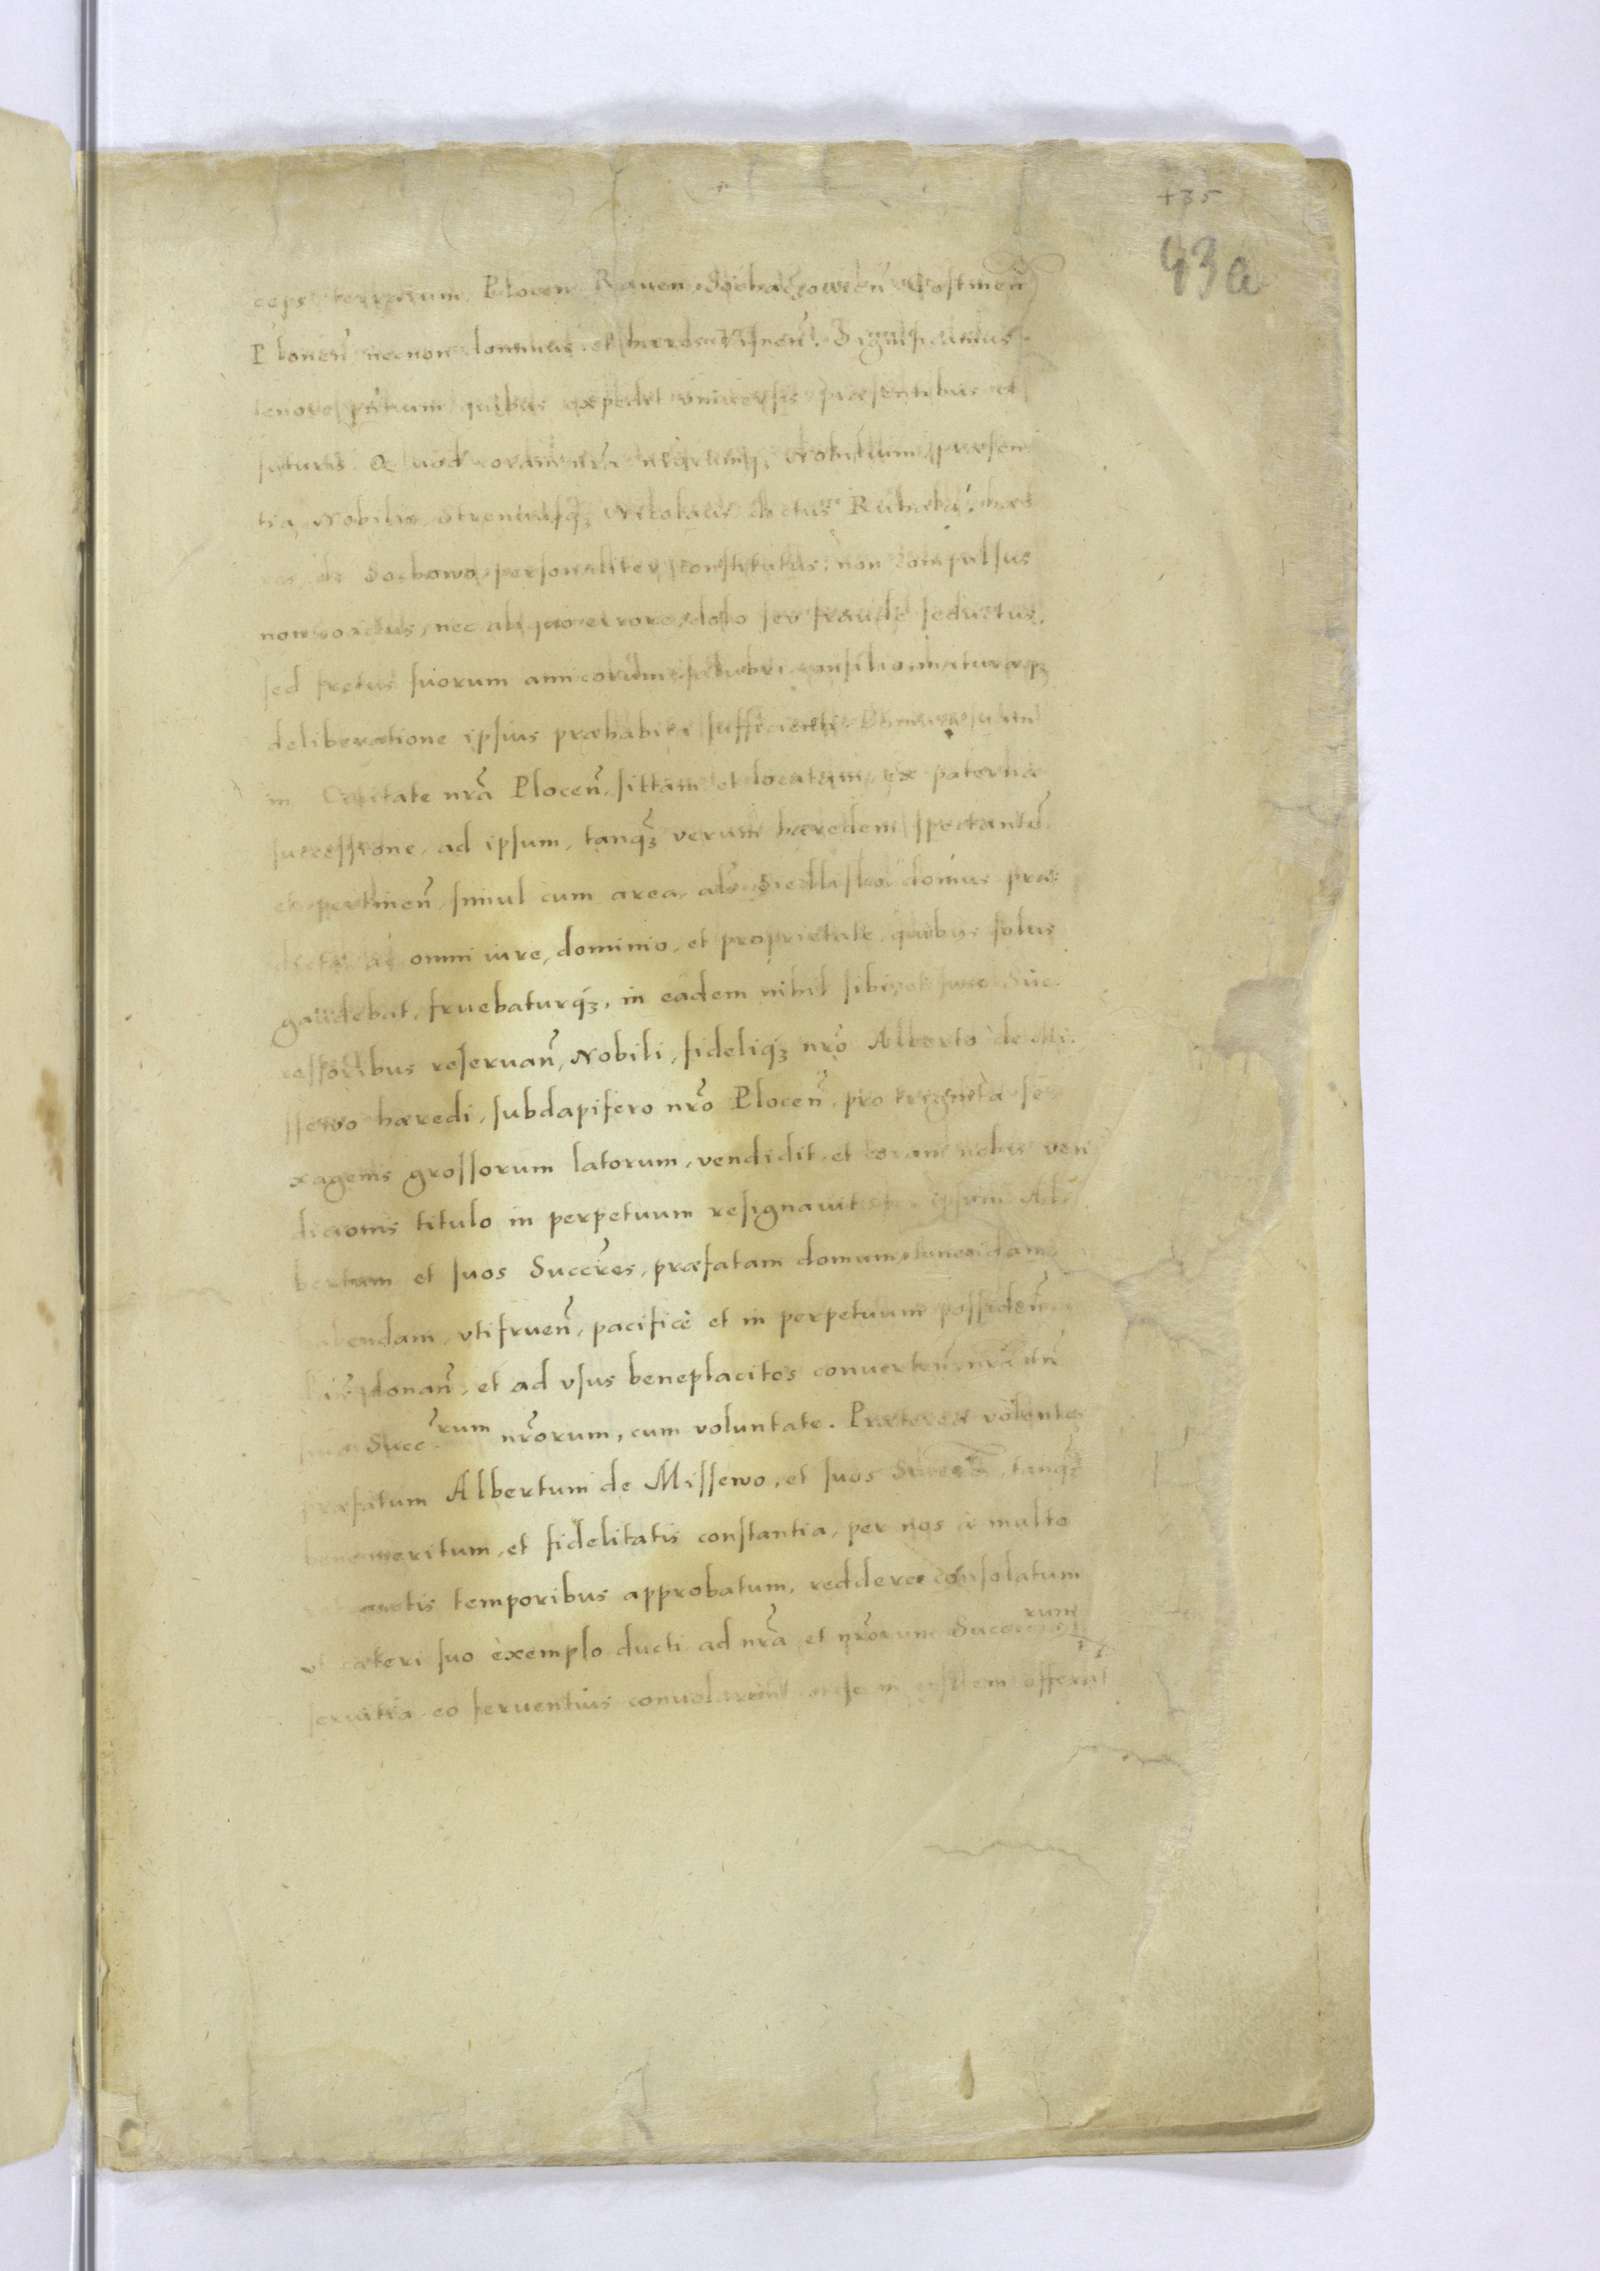 +35
43a
ceps terrarum Plocen Raven Sochaczowień Gostineñ
Ploneñ necnon dominus et hæres Visneñ. Significamus
tenore pñtium quibus expedit vniversis præsentibus et
futuris. Quod coram nrã nrorumq; Nobilium præsen
tia, Nobilis, Strenuusq; Nicolaus dictus hæred
de Sochowo personaliter constitutus, non compulsus
non coactus, nec aliquo errore, dolo seu fraude seductus,
sed fretus suorum amicorum salubri consilio, maturaq;
deliberatione ipsius præhabita sufficienti. Domum suam
in Civitate nrã Ploceñ, sittam et locatam, ex paterna
successione, ad ipsum, tanq; verum hæredem spectanté
et pertineñ, simul cum area, als Siedlisko domus præ:
dicta, ac omni iure, dominio, et proprietate, quibus solus
gaudebat, fruebaturq;, in eadem nihil sibi, et suis Suc:
cessoribus reseruañ, Nobili, fideliq; nrõ Alberto de Mi:
ssewo hæredi, subdapifero nrõ Ploceñ, pro triginta se
xagenis grossorum latorum, vendidit, et coram nobis ven
dicionis titulo in perpetuum resignauit per ipsum Al:
bertum et suos Succres, præfatam domum, tenendam,
habendam, vtifrueñ, pacificè et in perpetuum possideñ,
donañ, et ad vsus beneplacitos converteñ, nrã tñ
Succ rum nrõrum, cum voluntate. Præterea volentes
præfatum Albertum de Missewo, et suos Succes, tanq;
benemeritum, et fidelitatis constantia, per nos à multo
actis temporibus approbatum, reddere consolatum
vt cæteri suo exemplo ducti ad nrã, et nrõrum Succesrum
seruitia, eo feruentius convolarent, et se in eisdem offerat